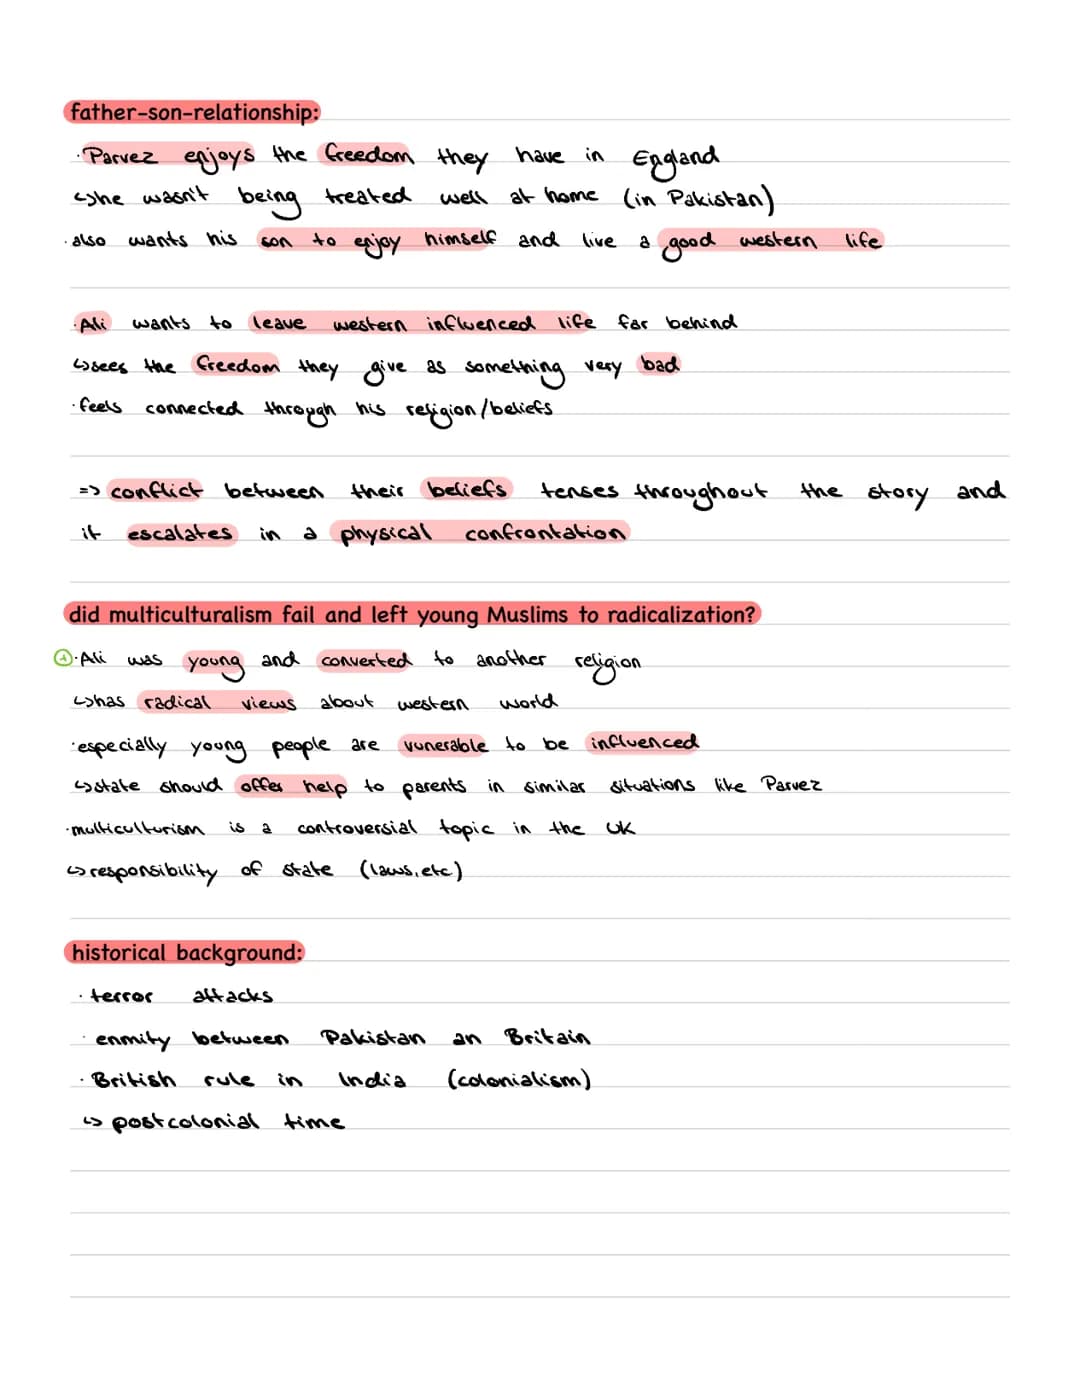 father-son-relationship:
· Parvez enjoys the freedom they have in England
↳he wasn't being treated well at home (in Pakistan)
· also wants his son to enjoy himself and live a good western life
· Ali wants to leave western influenced life far behind
↳sees the freedom they give as something very bad
· feels connected through his religion/beliefs
=> conflict between their beliefs tenses throughout the story and
it escalates in a physical confrontation
did multiculturalism fail and left young Muslims to radicalization?
+ · Ali was young and converted to another religion
↳has radical views about western world
· especially young people are vunerable to be influenced
↳state should offer help to parents in similar situations like Parvez
· multiculturism is a controversial topic in the UK
↳responsibility of state (laws, etc)
historical background:
· terror attacks
· enmity between Pakistan an Britain
· British rule in India (colonialism)
↳ postcolonial time